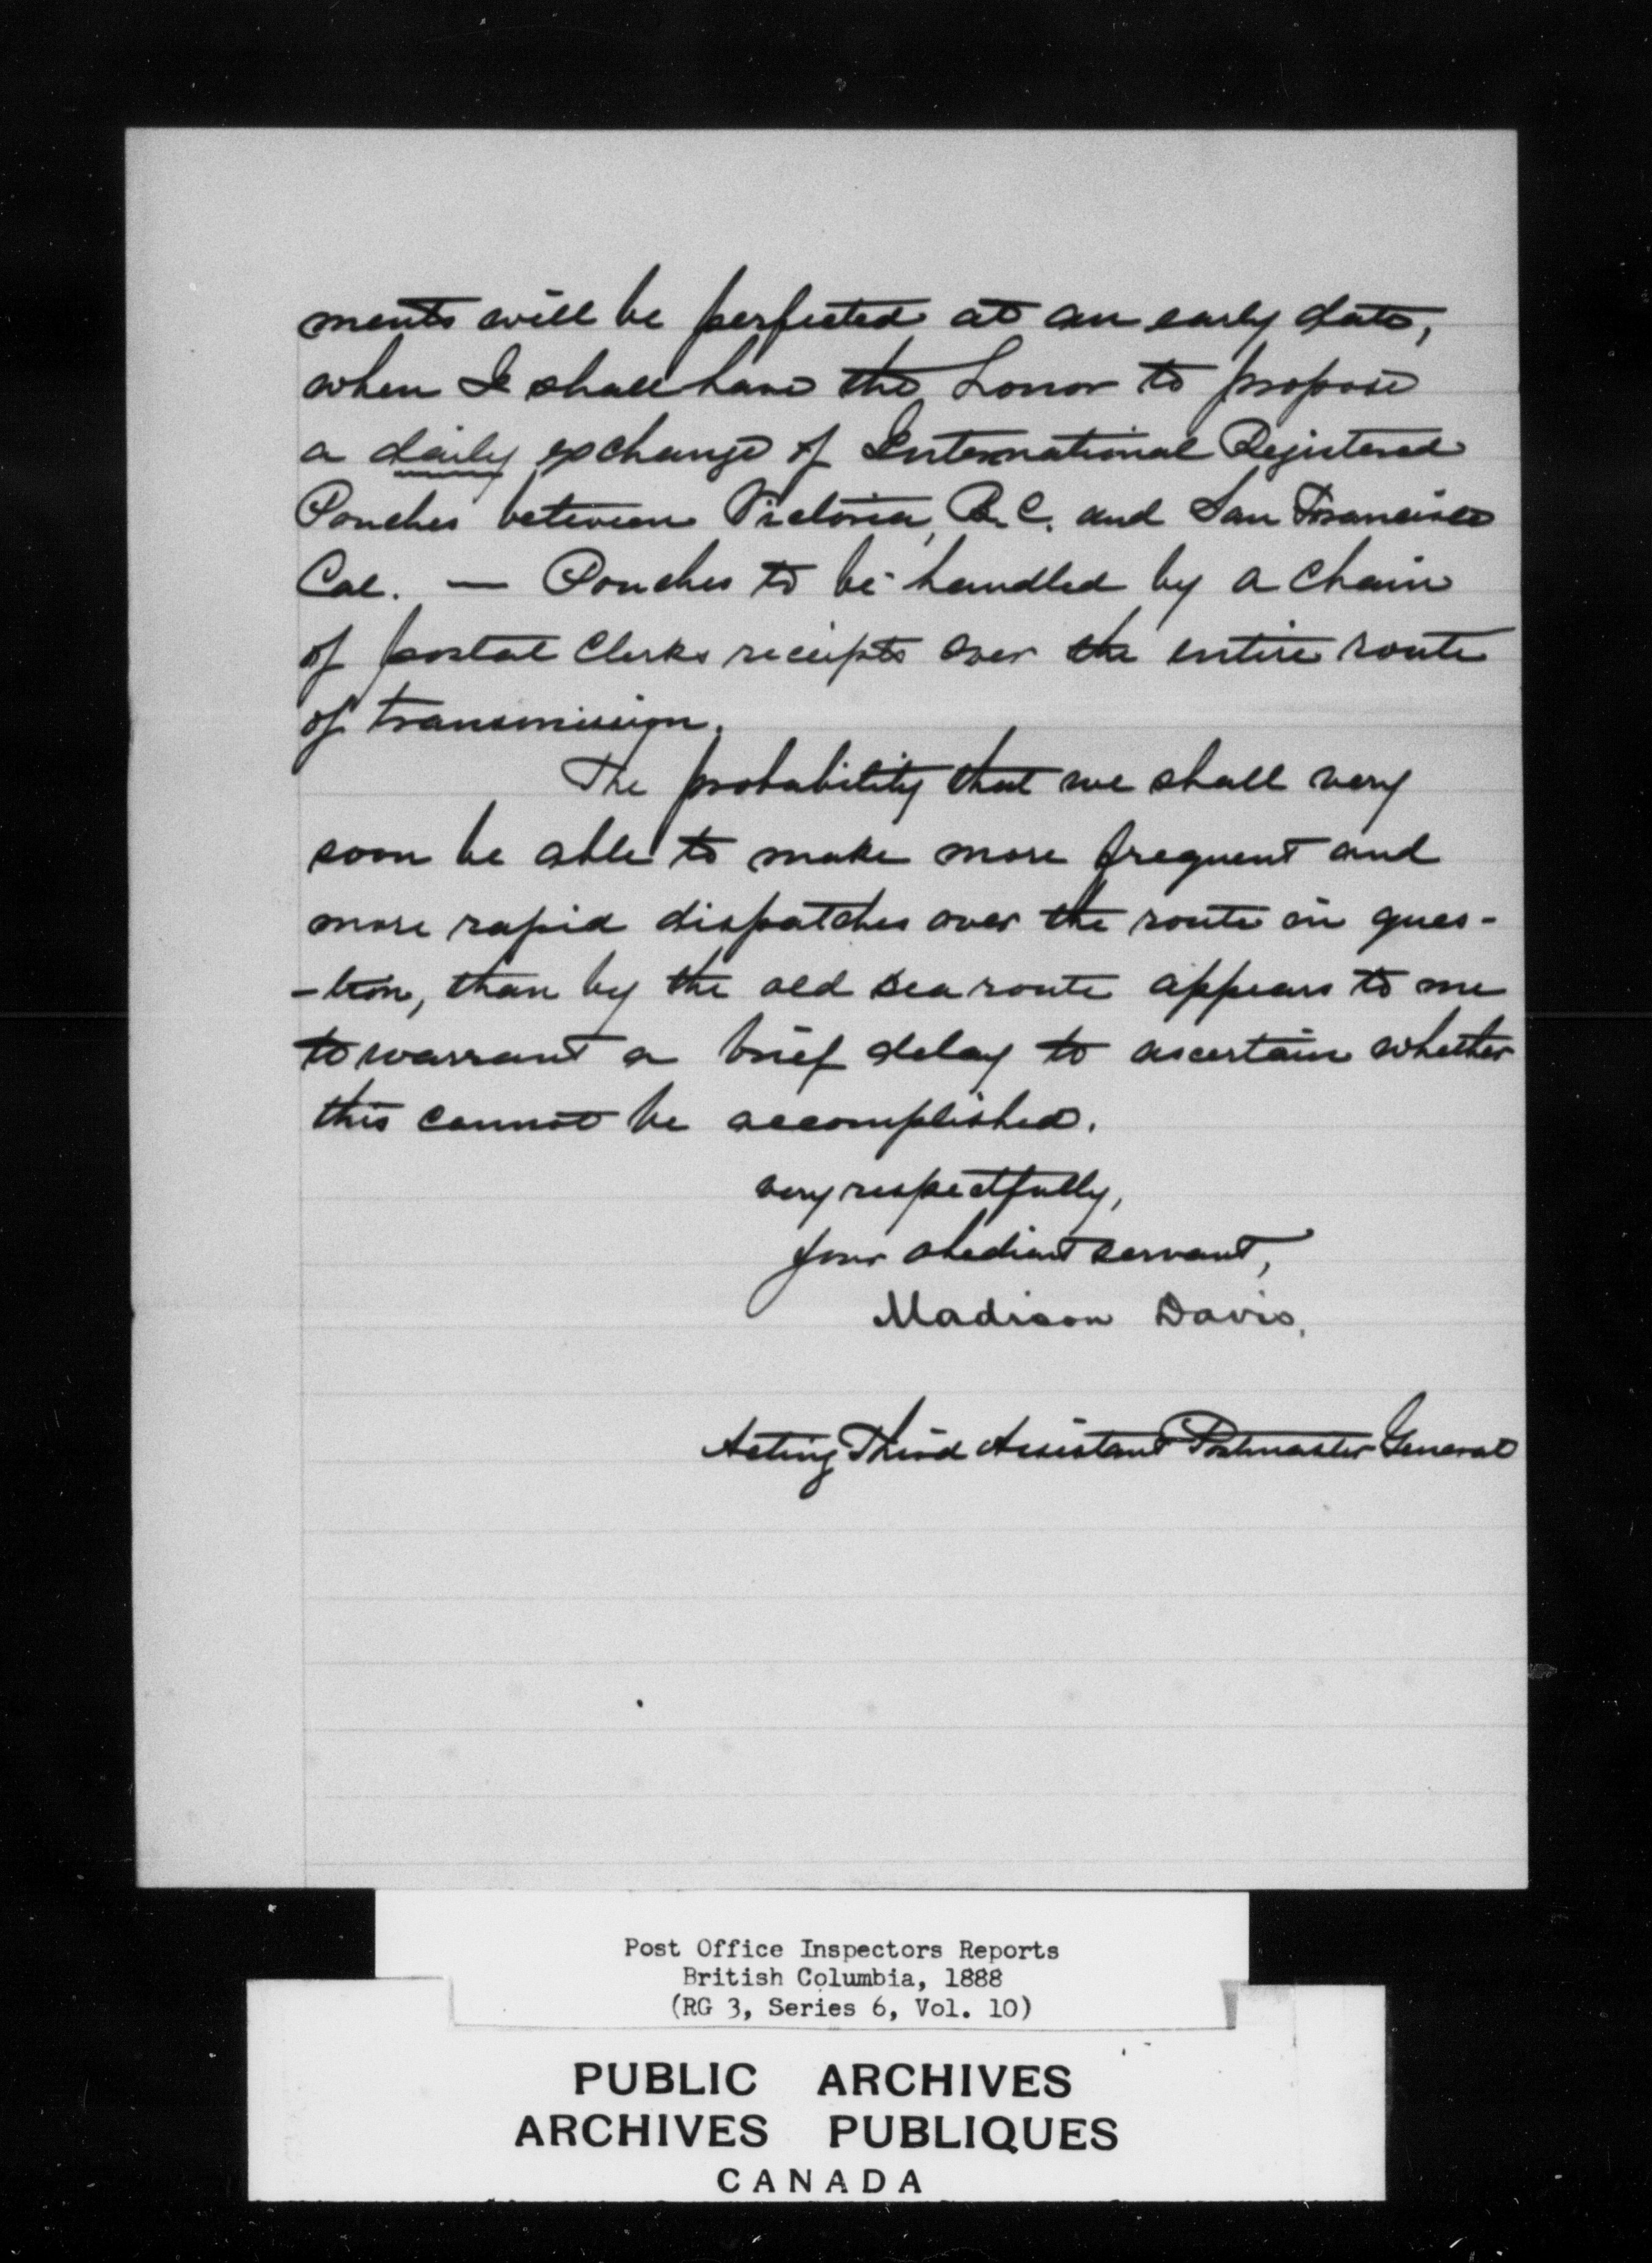 ments will be perfected at an early date,
when I shall have the honor to propose
a daily exchange of International Registered
Pouches between Victoria, B.C. and San Francisco
Cal. — Pouches to be handled by a chain
of postal clerks receipts over the entire route
of transmission.
The probability that we shall very
soon be able to make more frequent and
more rapid dispatches over the route in ques-
-tion, than by the old sea route appears to me
to warrant a brief delay to ascertain whether
this cannot be accomplished.
very respectfully,
your obedient servant,
Madison Davis.
Acting Third Assistant Postmaster General
Post Office Inspectors Reports
British Columbia, 1888
(RG 3, Series 6, Vol. 10)
PUBLIC ARCHIVES
ARCHIVES PUBLIQUES
CANADA